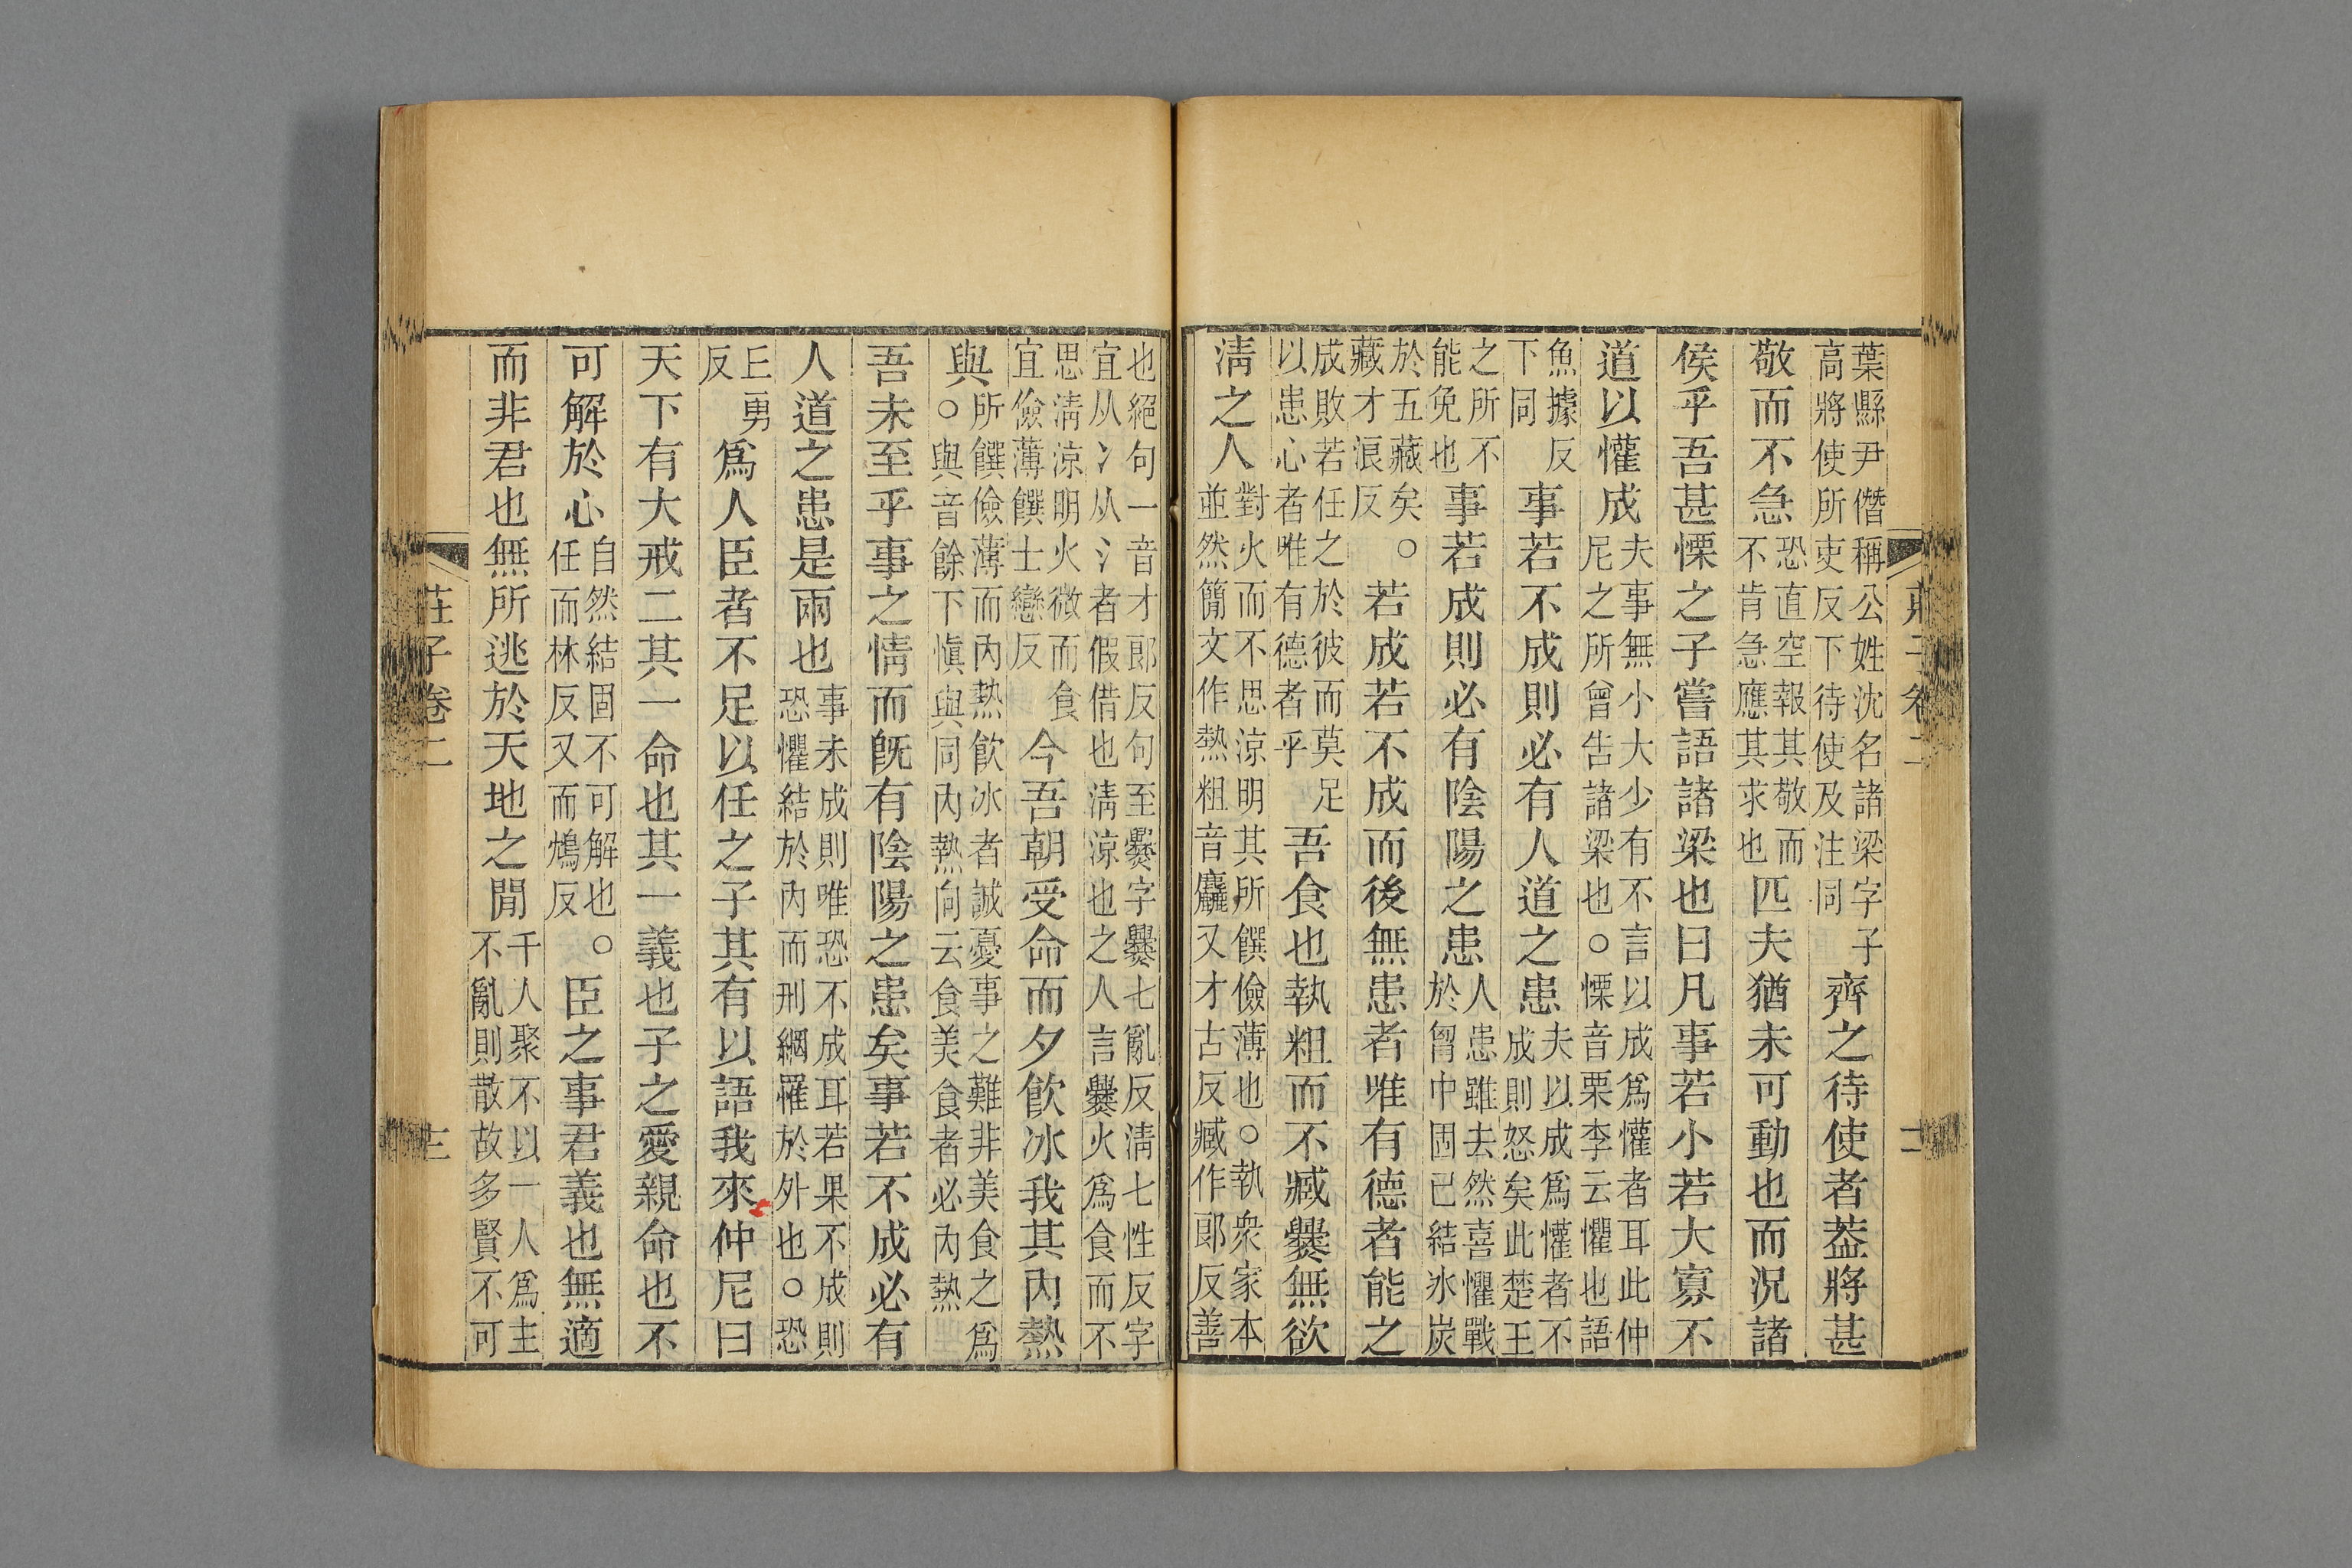 葉縣尹僭稱公姓沈名諸梁字子
高將使所吏反下待使及注同
齊之待使者葢將甚
敬而不急
恐直空報其敬而
不肯急應其求也
匹夫猶未可動也而況諸
侯乎吾甚慄之子嘗語諸梁也曰凡事若小若大寡不
道以懽成
夫事無小大少有不言以成爲懽者耳此仲
尼之所曾告諸梁也○慄音栗李云懼也語
魚據反
下同
事若不成則必有人道之患
夫以成爲懽者不
成則怒矣此楚王
之所不
能免也
事若成則必有陰陽之患
人患雖去然喜懼戰
於胷中固已結冰炭
於五藏矣○
藏才浪反
若成若不成而後無患者唯有德者能之
成敗若任之於彼而莫足
以患心者唯有德者乎
吾食也執粗而不臧爨無欲
淸之人
對火而不思涼明其所饌儉薄也○執衆家本
並然簡文作熱粗音麤又才古反臧作郞反善
也絕句一音才郞反句至爨字爨七亂反淸七性反字
宜从冫从氵者假借也淸涼也之人言爨火爲食而不
思淸涼明火微而食
宜儉薄饌士戀反
今吾朝受命而夕飮冰我其內熱
與
所饌儉薄而內熱飮冰者誠憂事之難非美食之爲
○與音餘下愼與同內熱向云食美食者必內熱
吾未至乎事之情而旣有陰陽之患矣事若不成必有
人道之患是兩也
事未成則唯恐不成耳若果不成則
恐懼結於內而刑網羅於外也○恐
丘勇
反
爲人臣者不足以任之子其有以語我來仲尼曰
天下有大戒二其一命也其一義也子之愛親命也不
可解於心
自然結固不可解也○
任而林反又而鴆反
臣之事君義也無適
而非君也無所逃於天地之閒
千人聚不以一人爲主
不亂則散故多賢不可
莊子卷二